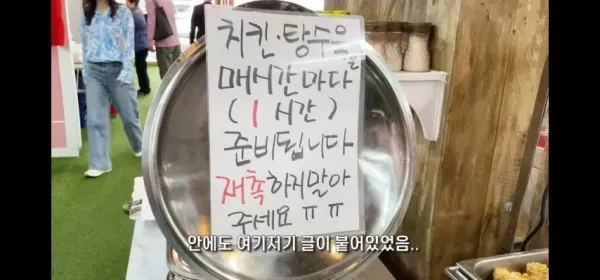 치킨·탕수육은
매시간마다
( 1 시간 )
준비됩니다
재촉하지말아
주세요 ㅠㅠ
안에도 여기저기 글이 붙어있었음..